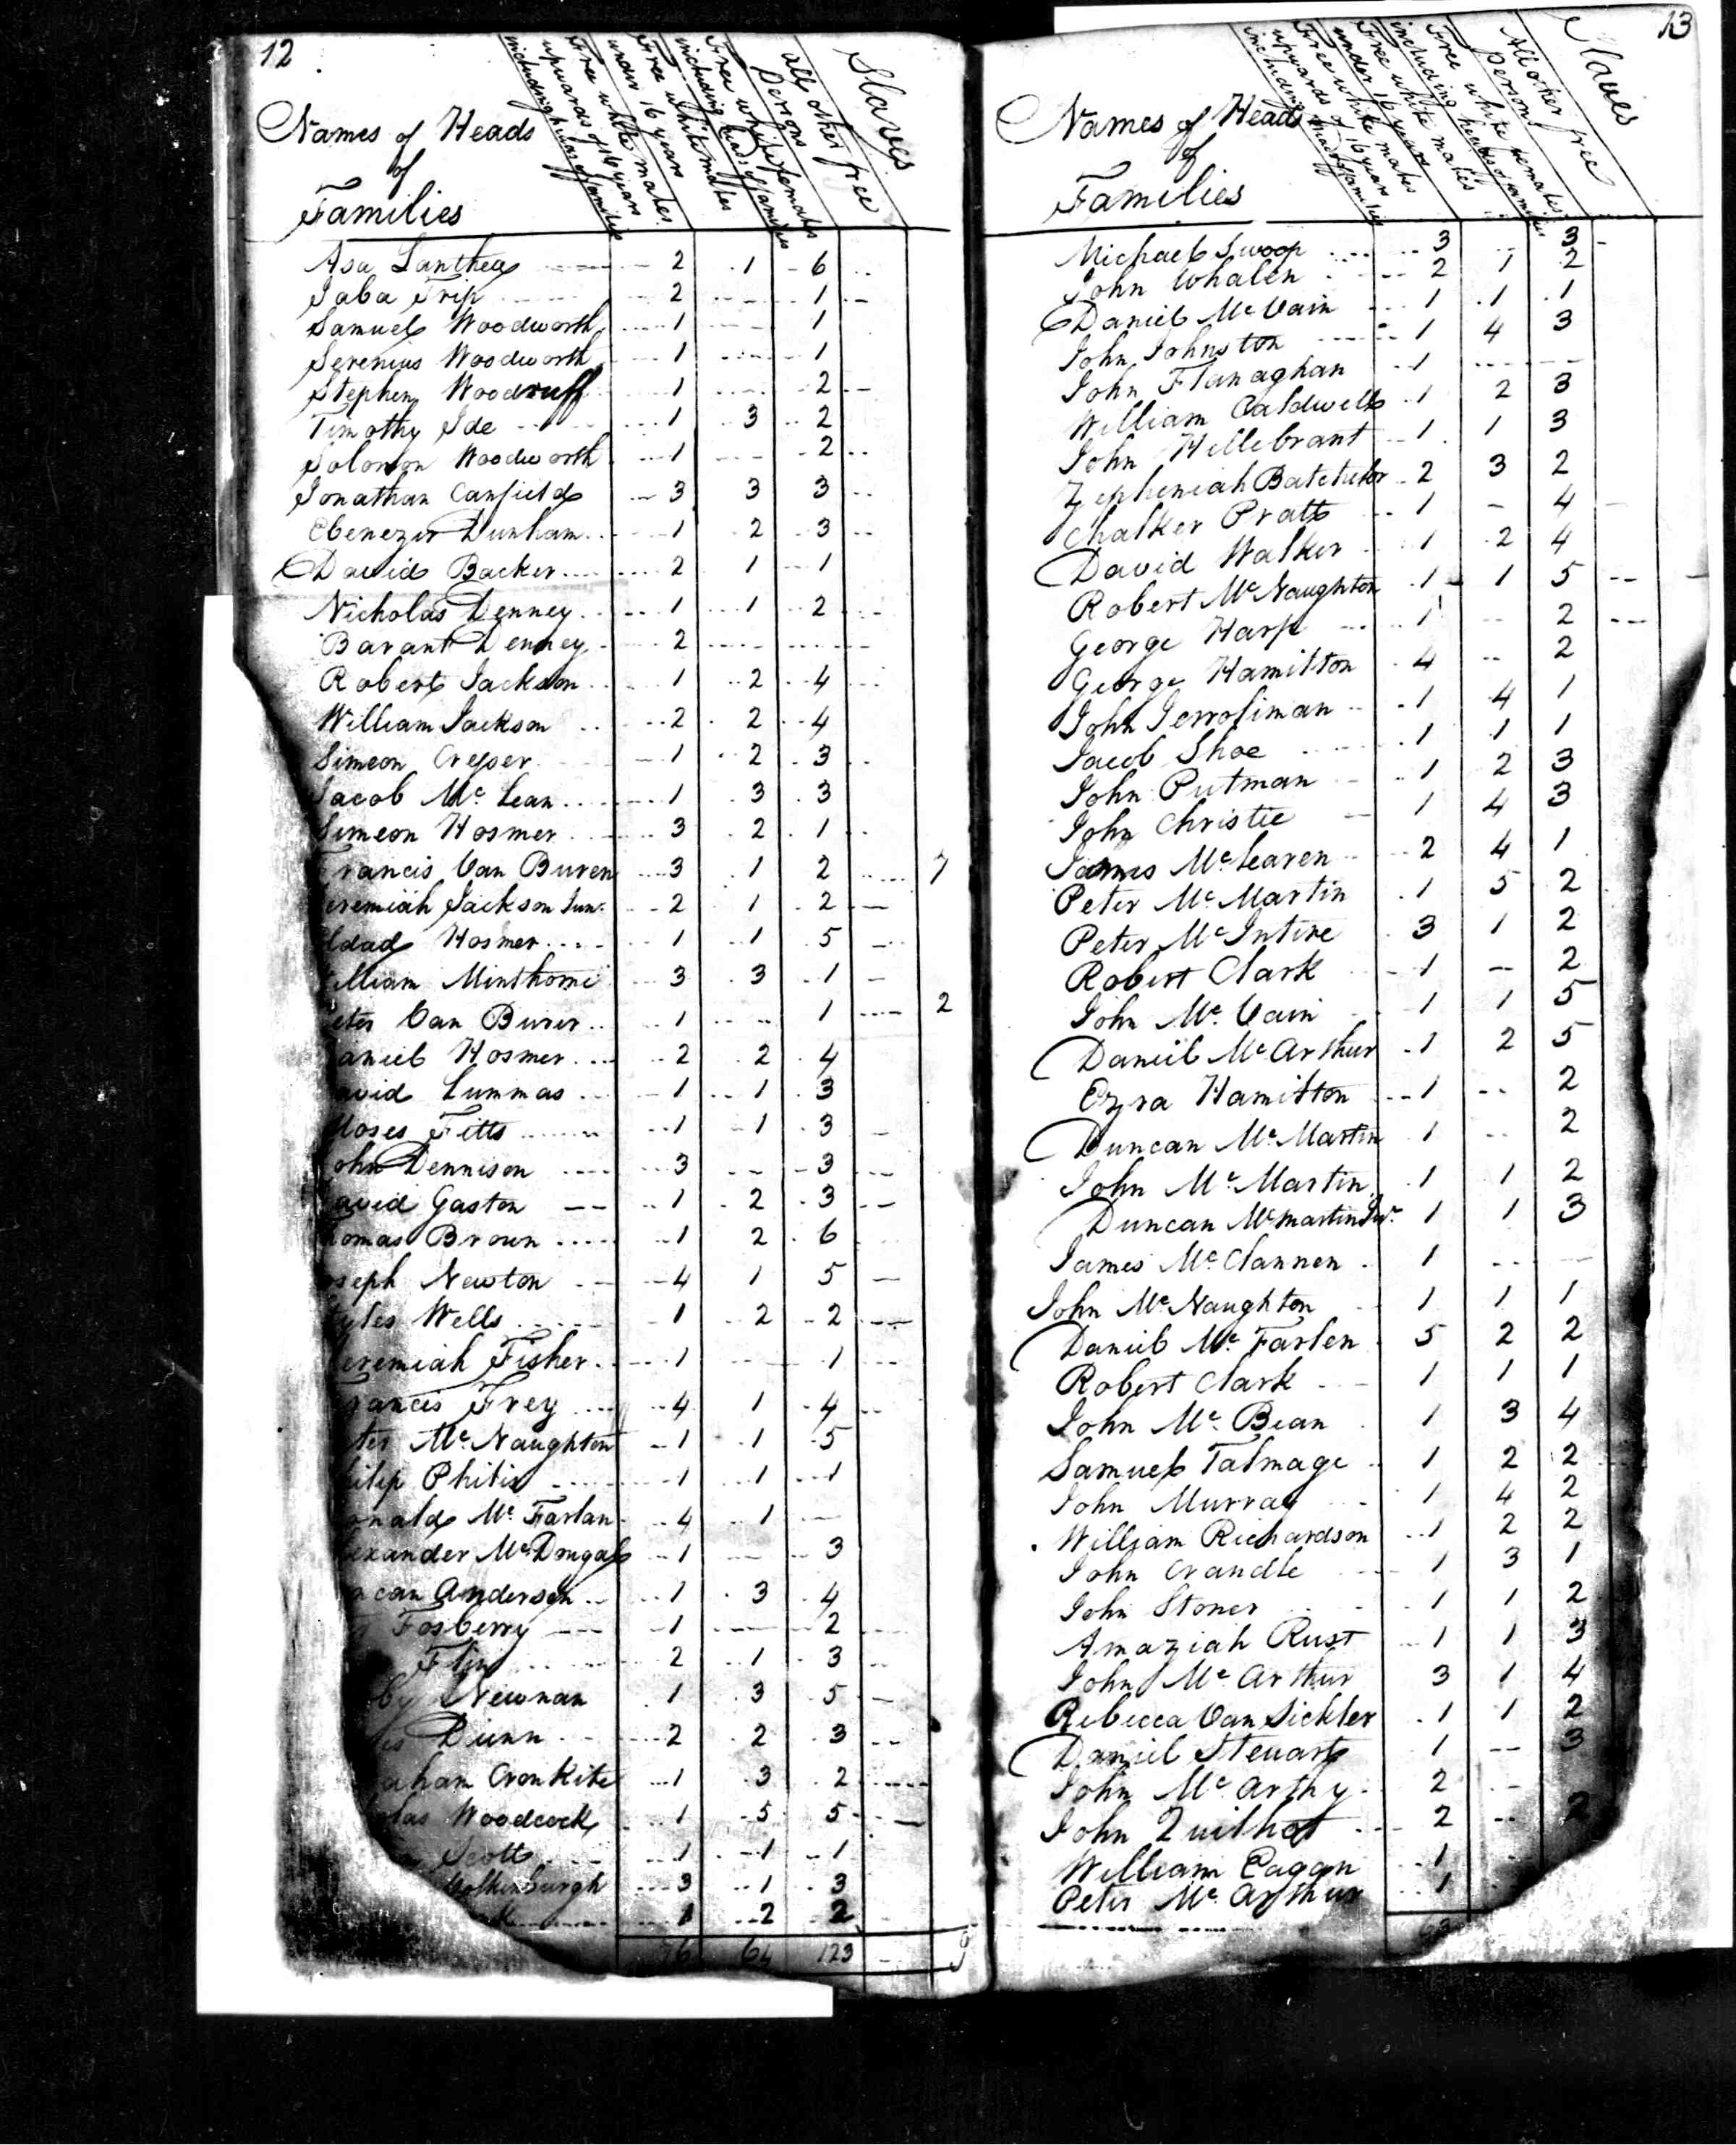 12
Names of Heads
of
Families
Free white males
upwards of 16 years
including heads of families
Free white males
under 16 years
Free white females
including heads of families
all other free
Persons
Slaves
Asa Lanthea 2 1 6
Jaba Trip 2 1
Samuel Woodworth 1 1
Serenius Woodworth 1 1
Stephen Woodruff 1 2
Timothy Ide 1 3 2
Solomon Woodworth 1 2
Jonathan Canfield 3 3 3
Ebenezer Dunham 1 2 3
David Backer 2 1 1
Nicholas Denney 1 1 2
Barant Denney 2
Robert Jackson 1 2 4
William Jackson 2 2 4
Simeon Creper 1 2 3
Jacob Mc Lean 1 3 3
Simeon Hosmer 3 2 1
Francis Van Buren 3 1 2 7
eremiah Jackson Jun. 2 1 2
ldad Hosmer 1 1 5
illiam Minthorne 3 3 1
eter Van Buren 1 1 2
aniel Hosmer 2 2 4
avid Lummas 1 1 3
Moses Fitts 1 1 3
John Dennison 3 3
avid Gaston 1 2 3
homas Brown 1 2 6
oseph Newton 4 1 5
yles Wells 1 2 2
eremiah Fisher 1 1
rancis Frey 4 1 4
ter Mc Naughton 1 1 5
hilip Philip 1 1 1
onald Mc Farlan 4 1
exander Mc Dougal 1 3
ncan Anderson 1 3 4
Fosberry 1 2
Flin 2 1 3
by Newman 1 3 5
es Dunn 2 2 3
aham Cronkite 1 3 2
olas Woodcock 1 5 5
Scott 1 1 1
Volkenburgh 3 1 3
1 2 2
76 64 123 9
13
Names of Heads
of
Families
Free white males
upwards of 16 years
including heads of families
Free white males
under 16 years
Free white females
including heads of families
All other free
Persons
Slaves
Michael Swoop 3 3
John Whalen 2 1 2
Daniel Mc Vain 1 1 1
John Johnston 1 4 3
John Flanaghan 1
William Caldwell 1 2 3
John Hillebrant 1 1 3
Zepheniah Batchelor 2 3 2
Chalker Pratt 1 4
David Walker 1 2 4
Robert Mc Naughton 1 1 5
George Harp 1 2
George Hamilton 4 2
John Serroliman 1 4 1
Jacob Shoe 1 1 1
John Putman 1 2 3
John Christie 1 4 3
James Mc Learen 2 4 1
Peter Mc Martin 1 5 2
Peter Mc Intire 3 1 2
Robert Clark 1 2
John Mc Vain 1 1 5
Daniel Mc Arthur 1 2 5
Ezra Hamilton 1 2
Duncan Mc Martin 1 2
John Mc Martin 1 1 2
Duncan McMartin Jur. 1 1 3
James Mc Clannen 1
John Mc Naughton 1 1 1
Daniel Mc Farlen 5 2 2
Robert Clark 1 1 1
John Mc Bean 1 3 4
Samuel Talmage 1 2 2
John Murray 1 4 2
William Richardson 1 2 2
John Crandle 1 3 1
John Stoner 1 1 2
Amaziah Rust 1 1 3
John Mc Arthur 3 1 4
Rebecca Van Sickler 1 1 2
Daniel Steuart 1 3
John Mc Arthy 2
John Quilhot 2 2
William Eagan 1
Peter Mc Arthur 1
63